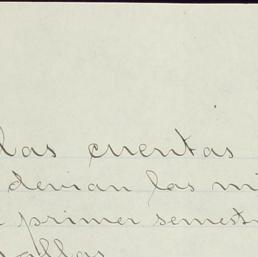 las cuentas
devian las mi
primer semest